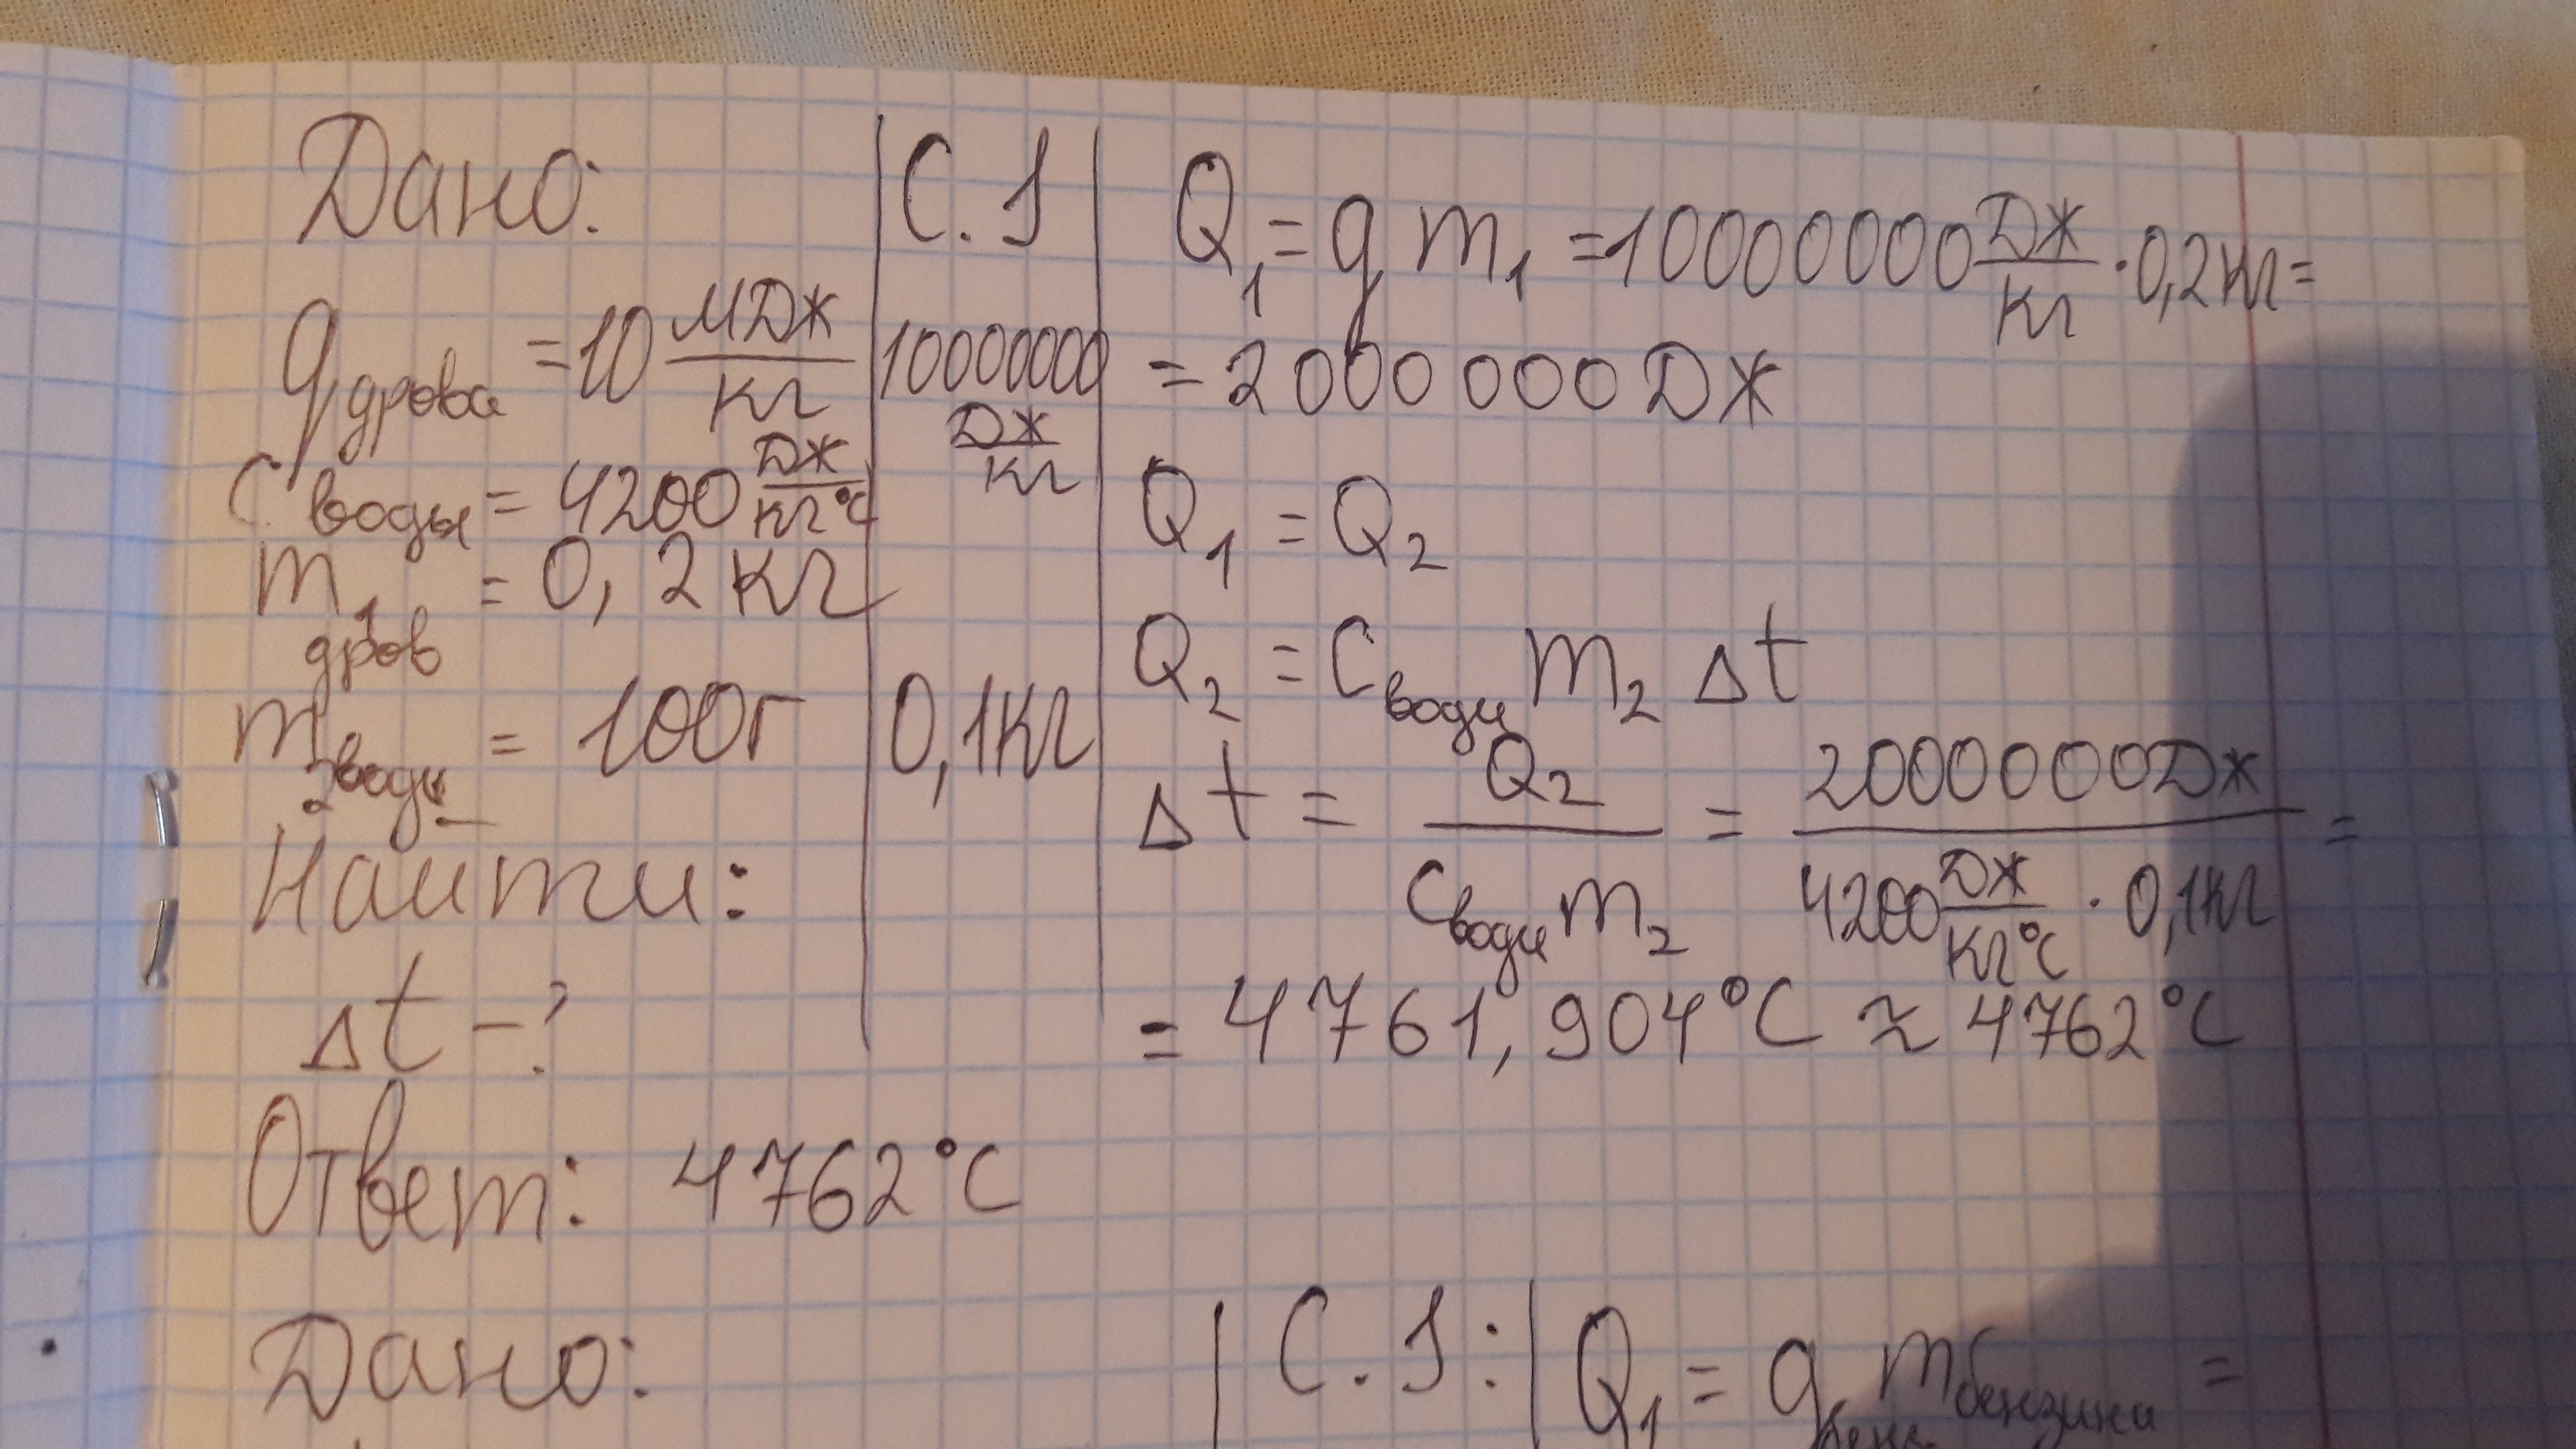 Дано:
qдрова = 10 МДж/кг
своды = 4200 Дж/кг°С
m1 дров = 0,2 кг
m2 воды = 100г
Найти:
Δt - ?
С.J
10000000 Дж/кг
0,1кг
Q1 = q m1 = 10000000 Дж/кг · 0,2кг =
= 2000 000 Дж
Q1 = Q2
Q2 = Cводы m2 Δt
Δt = Q2/Cводы m2 = 2000000Дж/4200 Дж/кг°С · 0,1кг =
= 4761,904°С ≈ 4762°С
Ответ: 4762°С
Дано:
С.J:
Q1 = qбенз. mбензина =